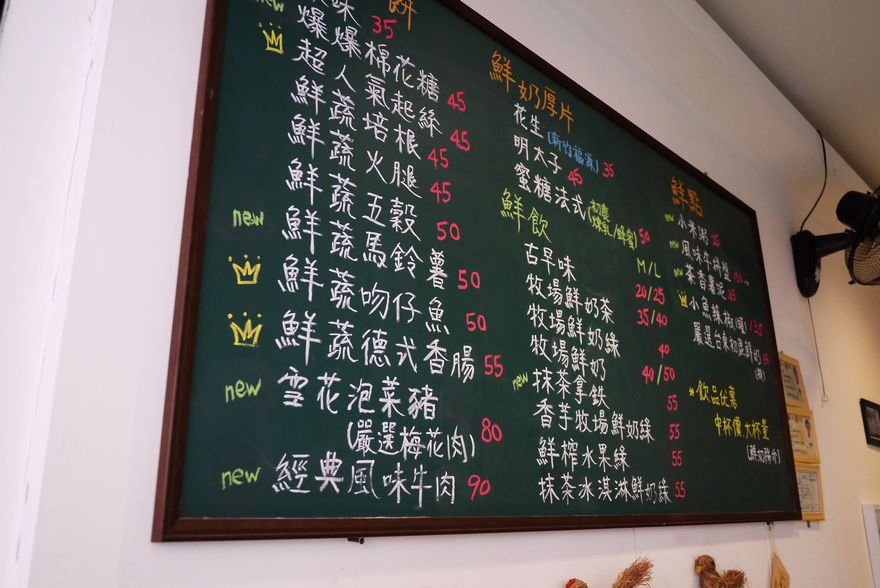 餅
new
味 35
爆爆棉花糖 45
超人氣起絲 45
鮮蔬培根 45
鮮蔬火腿 45
鮮蔬五穀 50
new 鮮蔬馬鈴薯 50
鮮蔬吻仔魚 50
鮮蔬德式香腸 55
new 雪花泡菜豬
(嚴選梅花肉) 80
new 經典風味牛肉 90
鮮奶厚片
花生(新竹福源) 35
明太子 45
蜜糖法式 50
鮮飲 M/L
古早味 20/25
牧場鮮奶茶 35/40
牧場鮮奶綠 40
牧場鮮奶 40/50
new 抹茶拿鐵 55
香芋牧場鮮奶綠 55
鮮榨水果綠 55
抹茶冰淇淋鮮奶綠 55
鮮點
new 小米粥
new 風味牛
new 茶香薯泥
小魚辣椒 135
嚴選台東初鹿鮮奶
*飲品优惠
中杯價大杯量